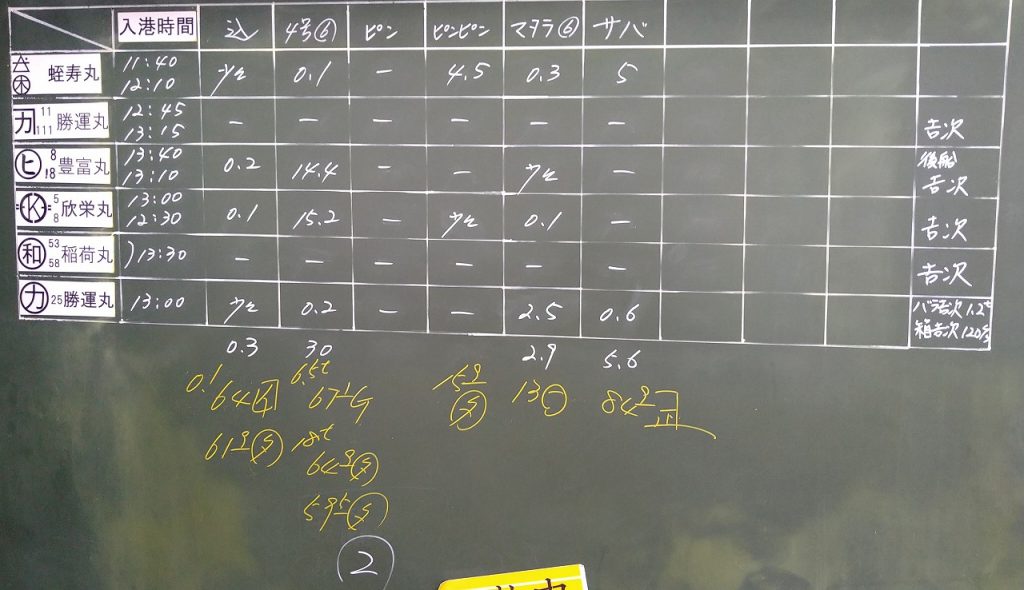 入港時間 込 4号⑥ ピン ピンピン マダラ⑥ サバ
蛭寿丸 11:40 12:10 少々 0.1 — 4.5 0.3 5
カ 11 111 勝運丸 12:45 13:15 — — — — — — 吉次
ヒ 8 18 豊富丸 13:40 13:10 0.2 14.4 — — 少々 — 後船 吉次
K 5 8 欣栄丸 13:00 12:30 0.1 15.2 — 少々 0.1 — 吉次
和 53 58 稲荷丸 )13:30 — — — — — — 吉次
カ 25 勝運丸 13:00 少々 0.2 — — 2.5 0.6 バラ吉次 1.2t 箱吉次 120
0.3 30 2.9 5.6
0.1 6.5t
64 67 15 13 84
61 18t
64
595
②